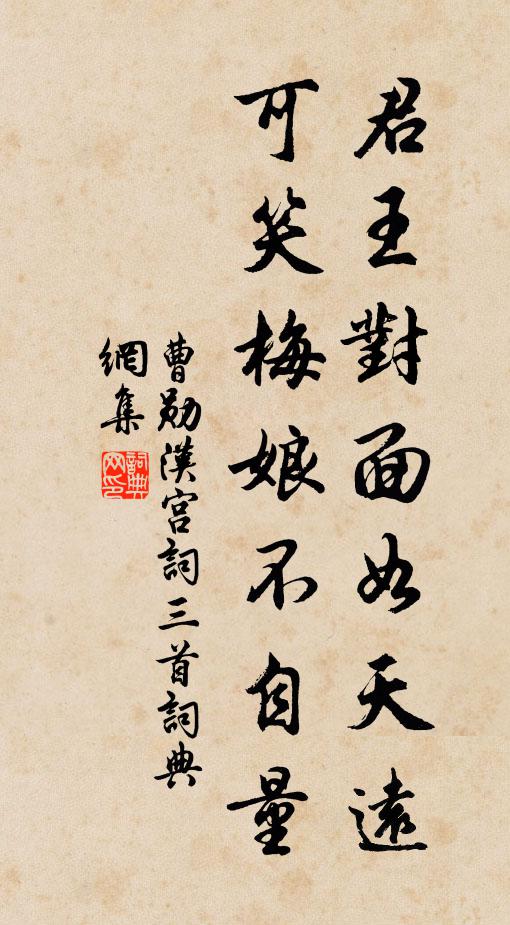 君王對面如天遠
可笑梅娘不自量
曹勛漢宮詞三首詞典
網集
詞典網印